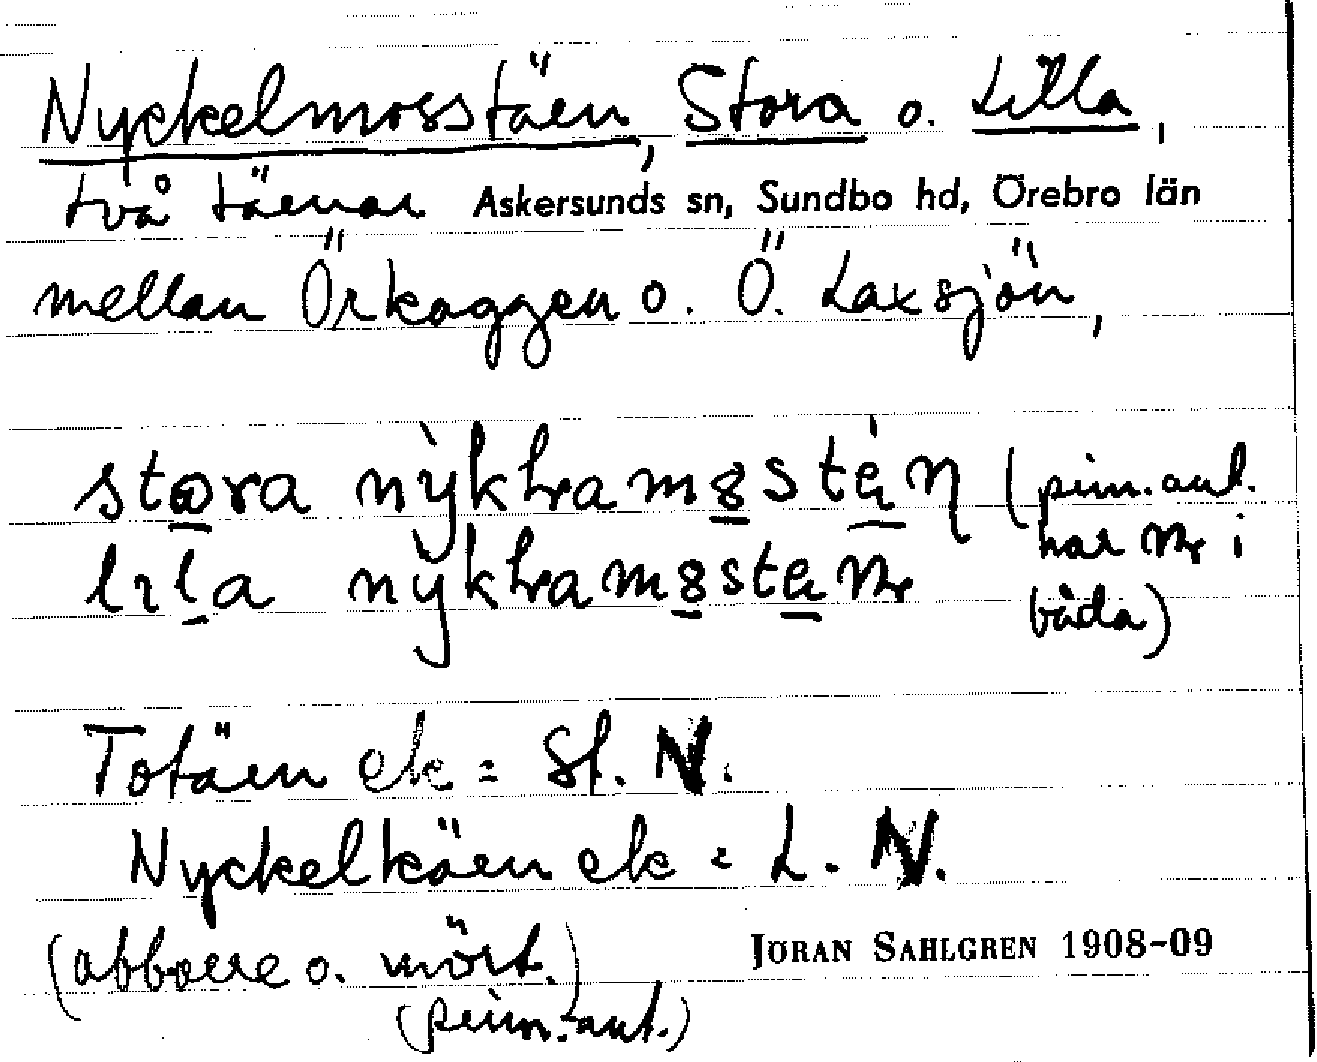 Nyckelmosstäen, Stora o. Lilla,
två täenar Askersunds sn, Sundbo hd, Örebro län
mellan Örkaggen o. Ö. Laxsjön,
stora nỳkħamssten (prim.ant.
har i
lila nỳkħamssten båda)
Totäen ek = St. N.
Nyckelkäen ek = L. N.
(abborre o. mört.)
JÖRAN SAHLGREN 1908-09
(prim.ant.)